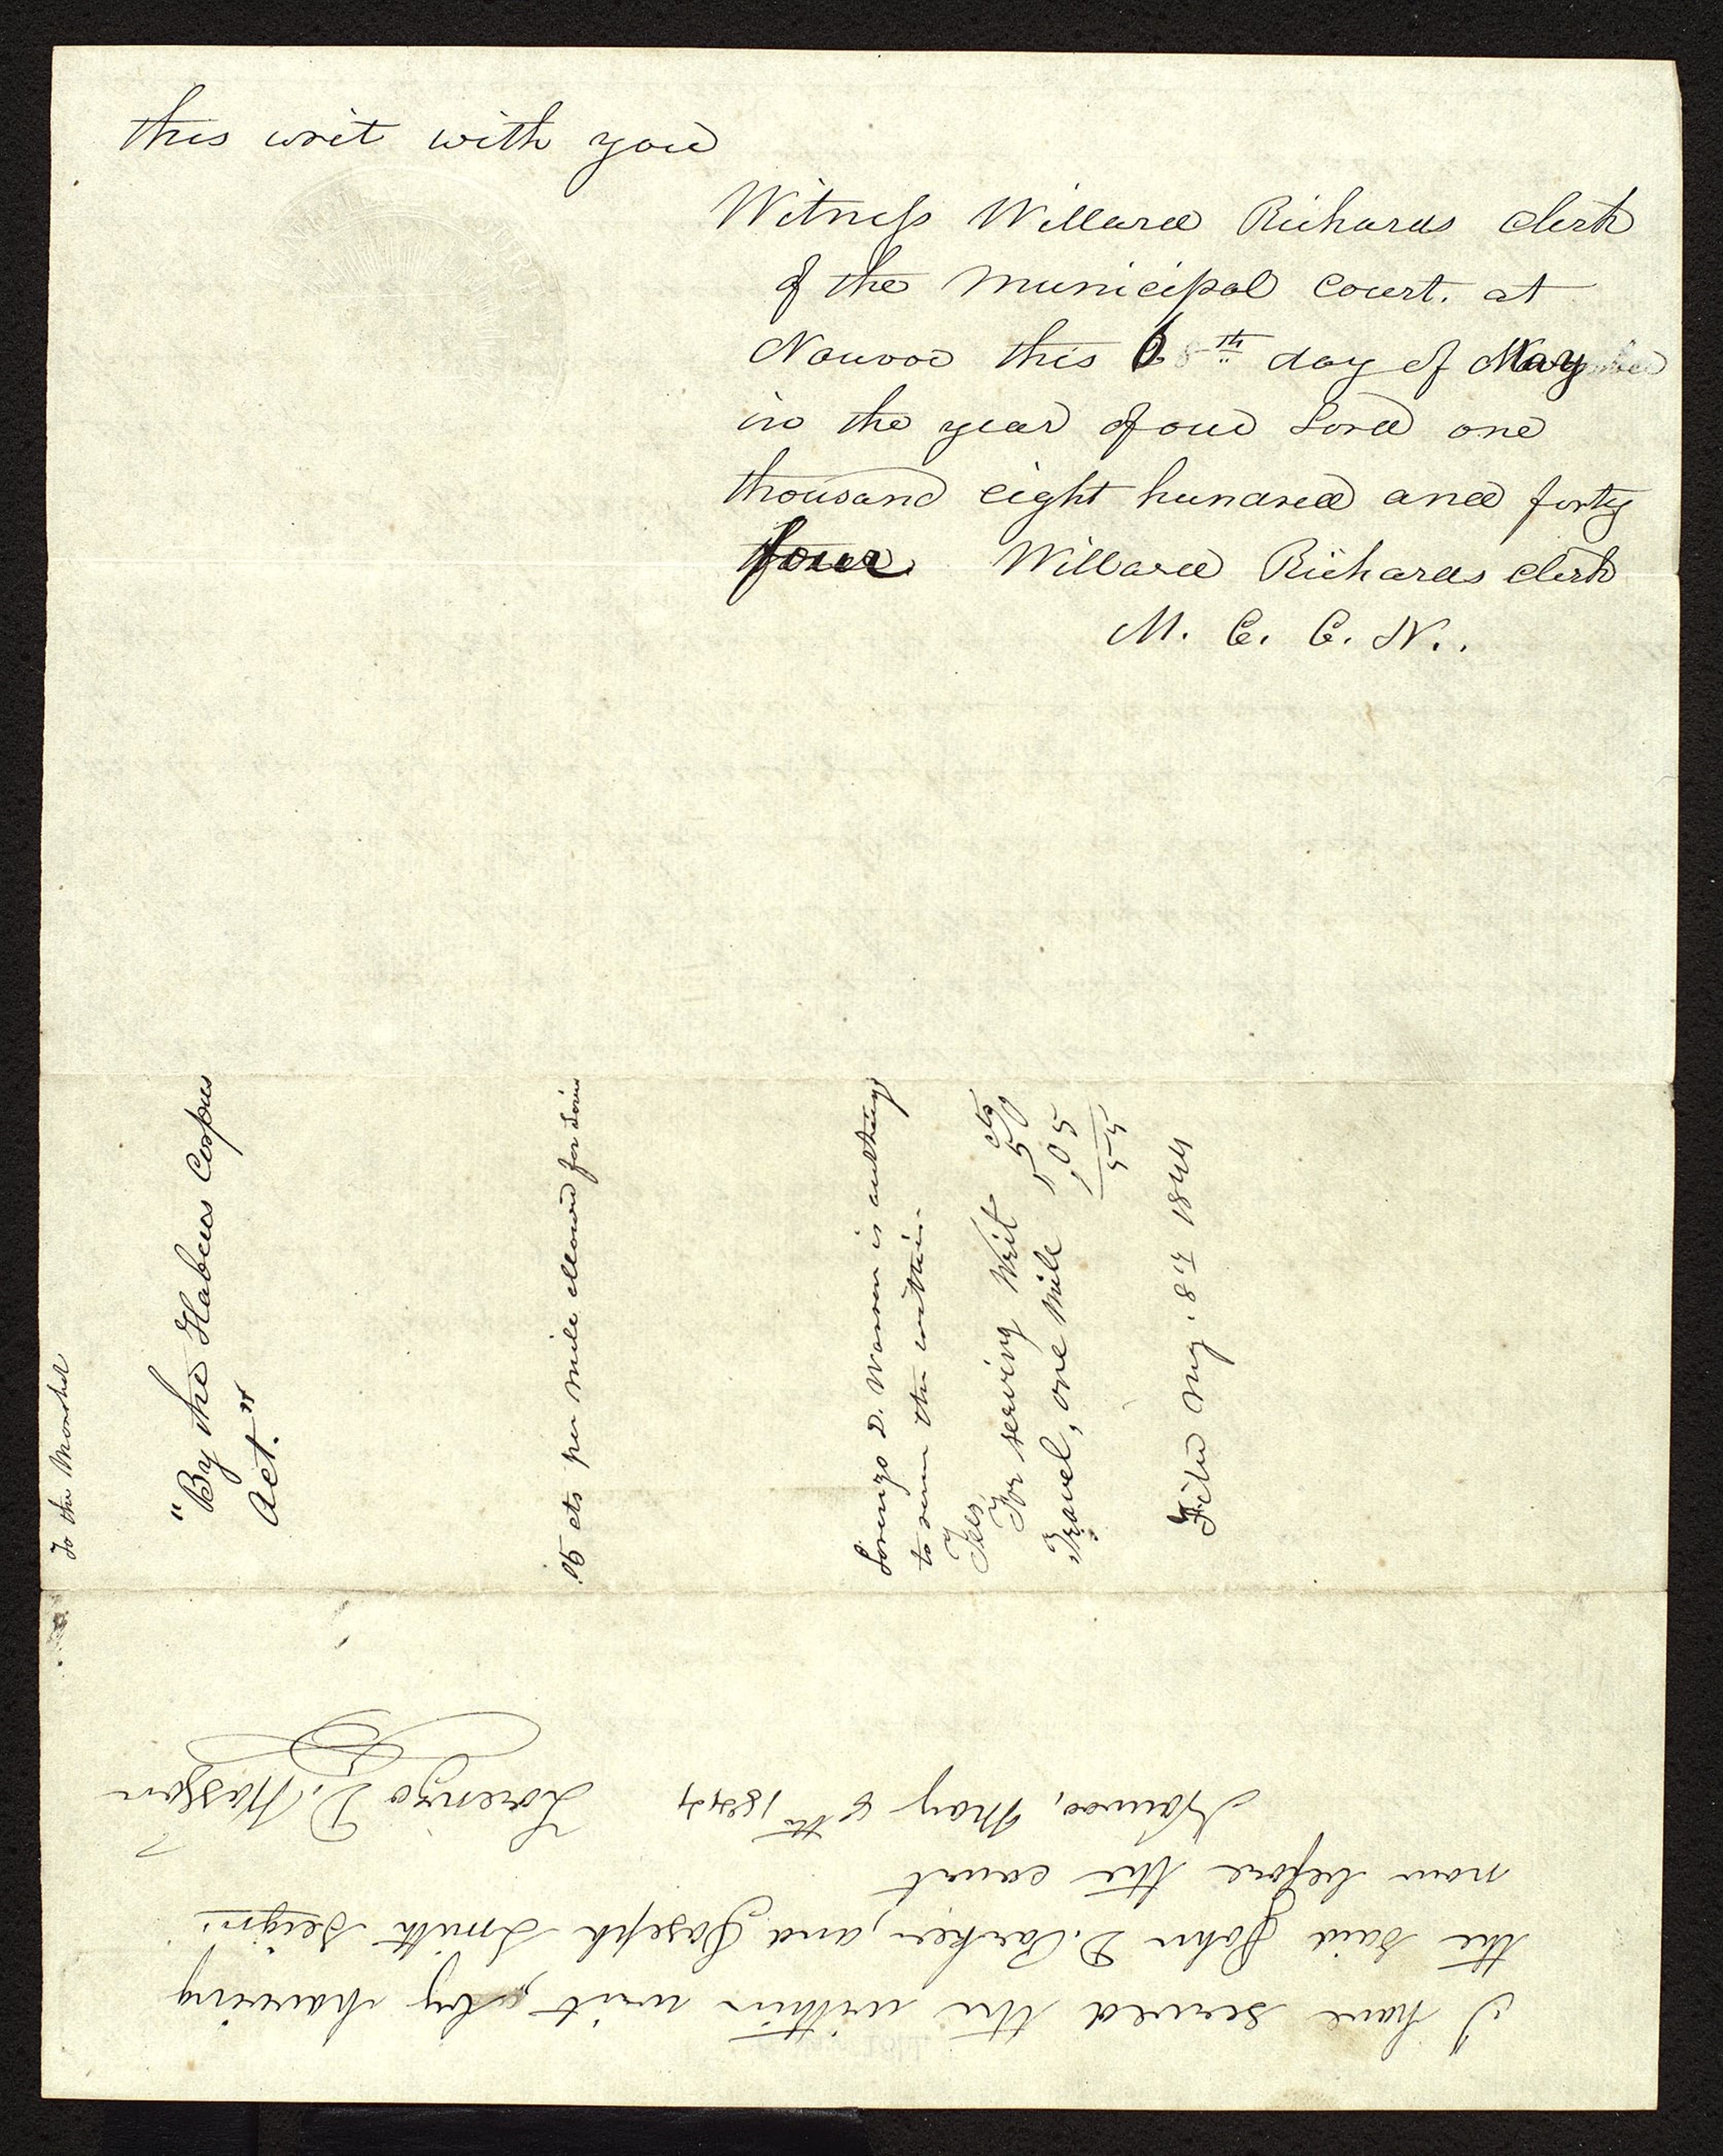 this writ with you
Witness Willard Richards clerk
of the municipal court. at
Nauvoo this 6 8th day of May
in the year of our Lord one
thousand eight hundred and forty
four. Willard Richards clerk
M. C. C. N..
To the Marshal
"By the Habeus Corpus
Act."
.05 cts per mile allowed for
Lorenzo D. Wasson is authorizd
to serve the within.
Fees,
cts
For serving Writ 50
Travel, one mile 05
55
Filed May. 8th 1844
I have served the within writ, by haveing
the said John D. Parker, and Joseph Smith Seign.
now before the court
Nauvoo, May 8th 1844
Lorenzo D. Wasson